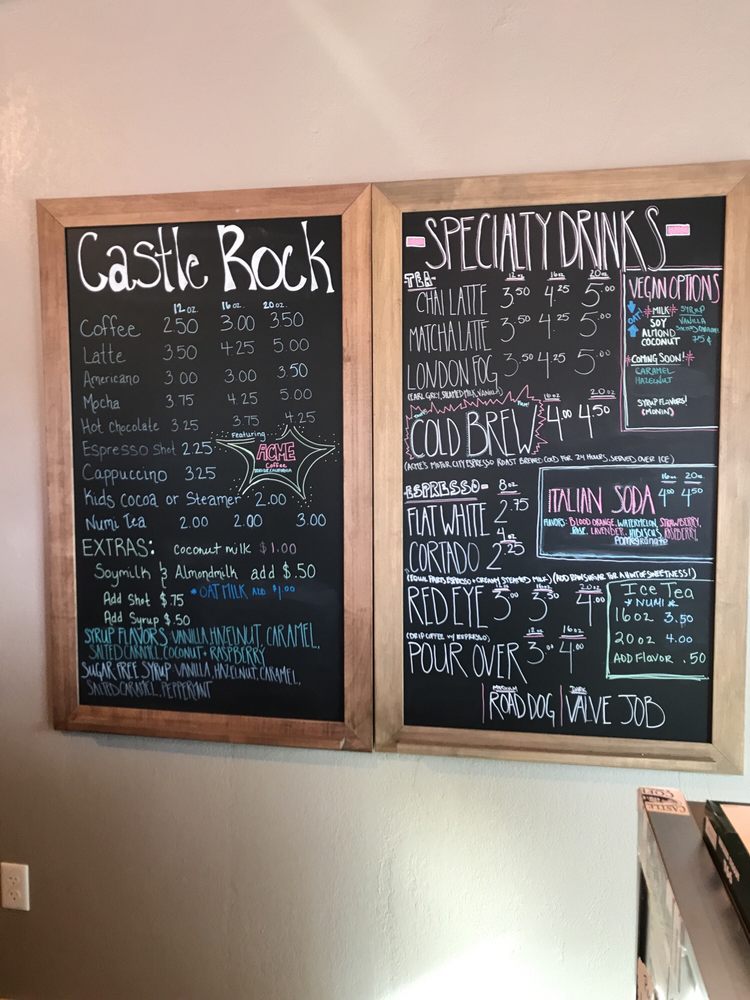 Castle Rock
12 oz. 16 oz. 20 oz.
Coffee 2.50 3.00 3.50
Latte 3.50 4.25 5.00
Americano 3.00 3.00 3.50
Mocha 3.75 4.25 5.00
Hot chocolate 3.25 3.75 4.25
Espresso shot 2.25
Featuring
ACME
Coffee
Cappuccino 3.25
Kids cocoa or Steamer 2.00
Numi Tea 2.00 2.00 3.00
EXTRAS: coconut milk $1.00
Soymilk & Almondmilk add $.50
* OAT MILK ADD $1.00
Add Shot $.75
Add Syrup $.50
SYRUP FLAVORS VANILLA, HAZELNUT, CARAMEL,
SALTED CARAMEL, COCONUT + RASPBERRY
SUGAR FREE SYRUP VANILLA, HAZELNUT, CARAMEL,
SALTED CARAMEL, PEPPERMINT
- SPECIALTY DRINKS -
TEA- 12 oz 16 oz 20 oz
CHAI LATTE 3.50 4.25 5.00
MATCHA LATTE 3.50 4.25 5.00
LONDON FOG 3.50 4.25 5.00
(EARL GREY, STEAMED MILK, VANILLA)
VEGAN OPTIONS
*MILK* SYRUP
OAT
SOY VANILLA
ALMOND SALTED CARAMEL
COCONUT 75¢
*COMING SOON!*
CARAMEL
HAZELNUT
SYRUP FLAVORS!
(MONIN)
16oz 20oz
COLD BREW 4.00 4.50
(ACME'S MOTOR CITY ESPRESSO ROAST BREWED COLD FOR 24 HOURS, SERVED OVER ICE)
ESPRESSO- 8 oz
FLAT WHITE 2.75
4 oz
CORTADO 2.25
(EQUAL PARTS ESPRESSO + CREAMY STEAMED MILK) (ADD RAW SUGAR FOR A HINT OF SWEETNESS!)
16oz 20oz
ITALIAN SODA 4.00 4.50
FLAVORS: BLOOD ORANGE, WATERMELON, STRAWBERRY,
ROSE, LAVENDER, HIBISCUS, RASPBERRY,
Pomegranate
12oz 16oz 20oz
RED EYE 3.00 3.50 4.00
(DRIP COFFEE W/ ESPRESSO)
12oz 16oz
POUR OVER 3.00 4.00
MEDIUM DARK
ROAD DOG | VALVE JOB
Ice Tea
* NUMI *
16 oz 3.50
20 oz 4.00
ADD FLAVOR .50